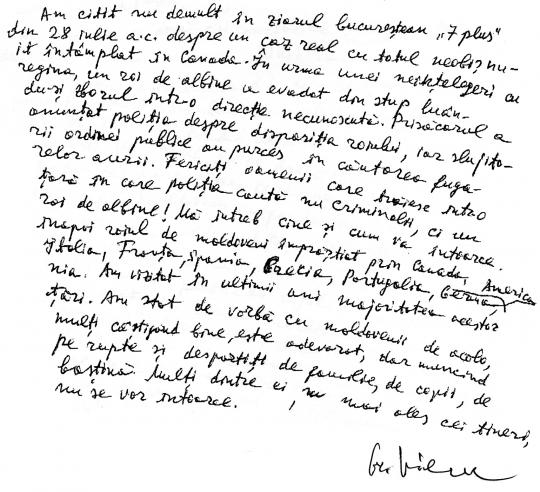 Am citit nu demult în ziarul bucureștean „7 plus"
din 28 iulie a.c. despre un caz real cu totul neobișnu-
it întâmplat în Canada. În urma unei neînțelegeri cu
regina, un roi de albine a evadat din stup luân-
du-și zborul într-o direcție necunoscută. Prisăcarul a
anunțat poliția despre dispariția roiului, iar slujito-
rii ordinei publice au purces în căutarea fuga-
relor aurii. Fericiți oamenii care trăiesc într-o
țară în care poliția caută nu criminali, ci un
roi de albine! Mă întreb cine și cum va întoarce
înapoi roiul de moldoveni împrăștiat prin Canada, America
Italia, Franța, Spania, Grecia, Portugalia, Germa-
nia. Am vizitat în ultimii ani majoritatea acestor
țări. Am stat de vorbă cu moldovenii de acolo,
mulți câștigând bine, este adevărat, dar muncind
pe rupte și despărțiți de familie, de copii, de
baștină. Mulți dintre ei, mai ales cei tineri,
nu se vor întoarce.